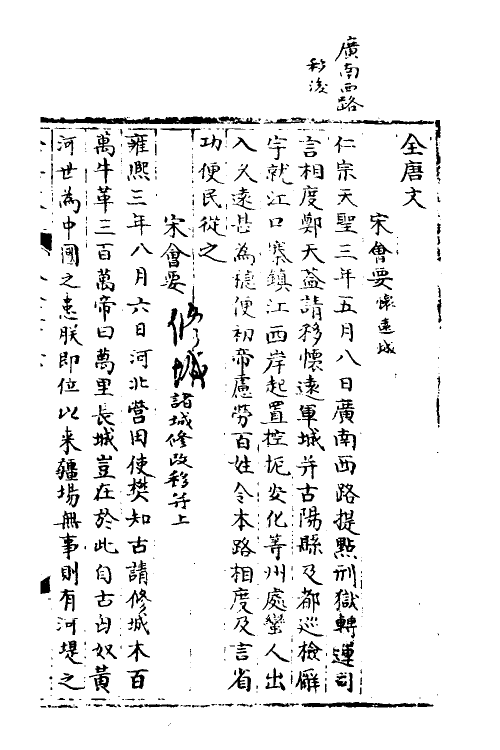 廣南西路
移後
全唐文
宋會要懷遠城
仁宗天聖三年五月八日廣南西路提點刑獄轉運司
言相度鄭天益請移懷遠軍城并古陽縣及都巡檢廨
宇就江口寨鎮江西岸起置控扼安化等州處蠻人出
入久遠甚為穩便初帝慮勞百姓令本路相度及言省
功便民從之
宋會要 修城 諸城修改移并上
雍熙三年八月六日河北營田使樊知古請修城木百
萬牛革三百萬帝曰萬里長城豈在於此自古匈奴黃
河世為中國之患朕即位以来疆場無事則有河堤之